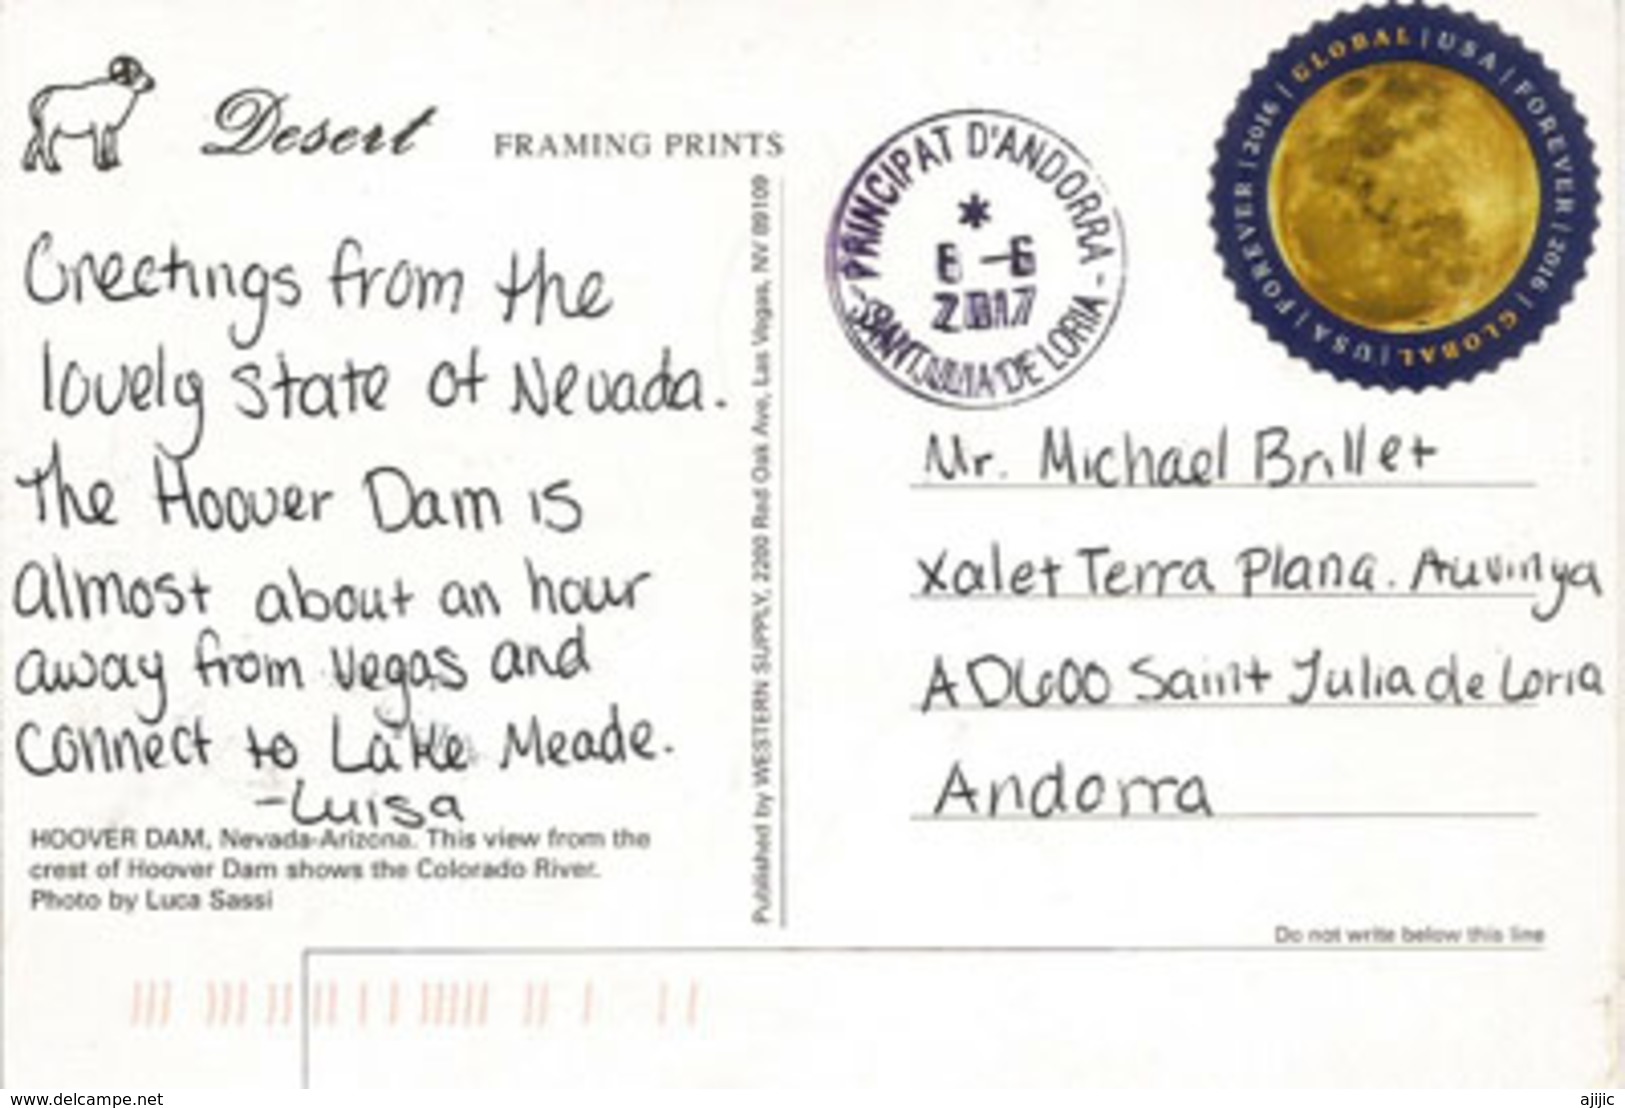 Desert FRAMING PRINTS
Greetings from the
lovely state of Nevada.
The Hoover Dam is
almost about an hour
away from Vegas and
connect to Lake Meade.
-Luisa
HOOVER DAM, Nevada-Arizona. This view from the
crest of Hoover Dam shows the Colorado River.
Photo by Luca Sassi
Published by WESTERN SUPPLY, 2200 Red Oak Ave, Las Vegas, NV 89109
PRINCIPAT D'ANDORRA
*
6 -6
2017
SANT JULIA DE LORIA
GLOBAL | USA | FOREVER | 2016 | GLOBAL | USA | FOREVER | 2016 |
Mr. Michael Brillet
Xalet Terra Plana. Auvinya
AD600 Saint Julia de Loria
Andorra
Do not write below this line
www.delcampe.net
ajijic